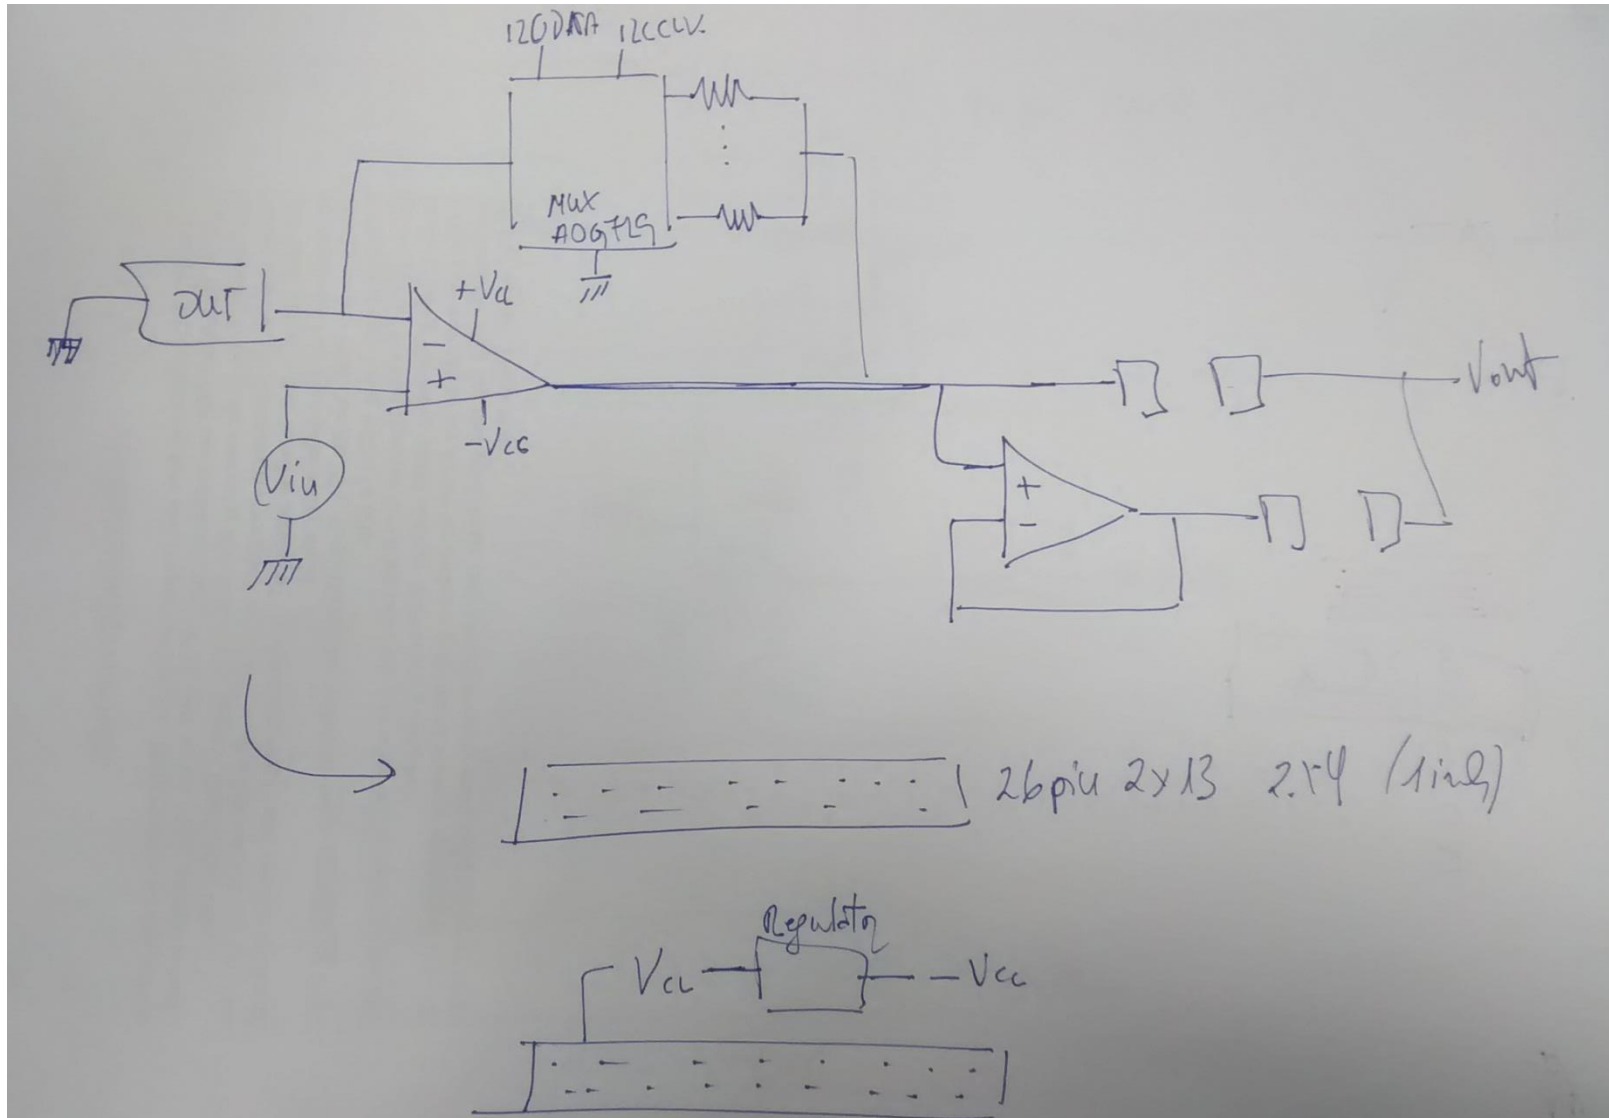 I2CDATA I2CCLK
MUX
ADG729
DUT
+Vcc
-
+
-Vcc
Vin
Vout
+
-
26pin 2x13 2.54 (1inch)
Regulator
Vcc
-Vcc